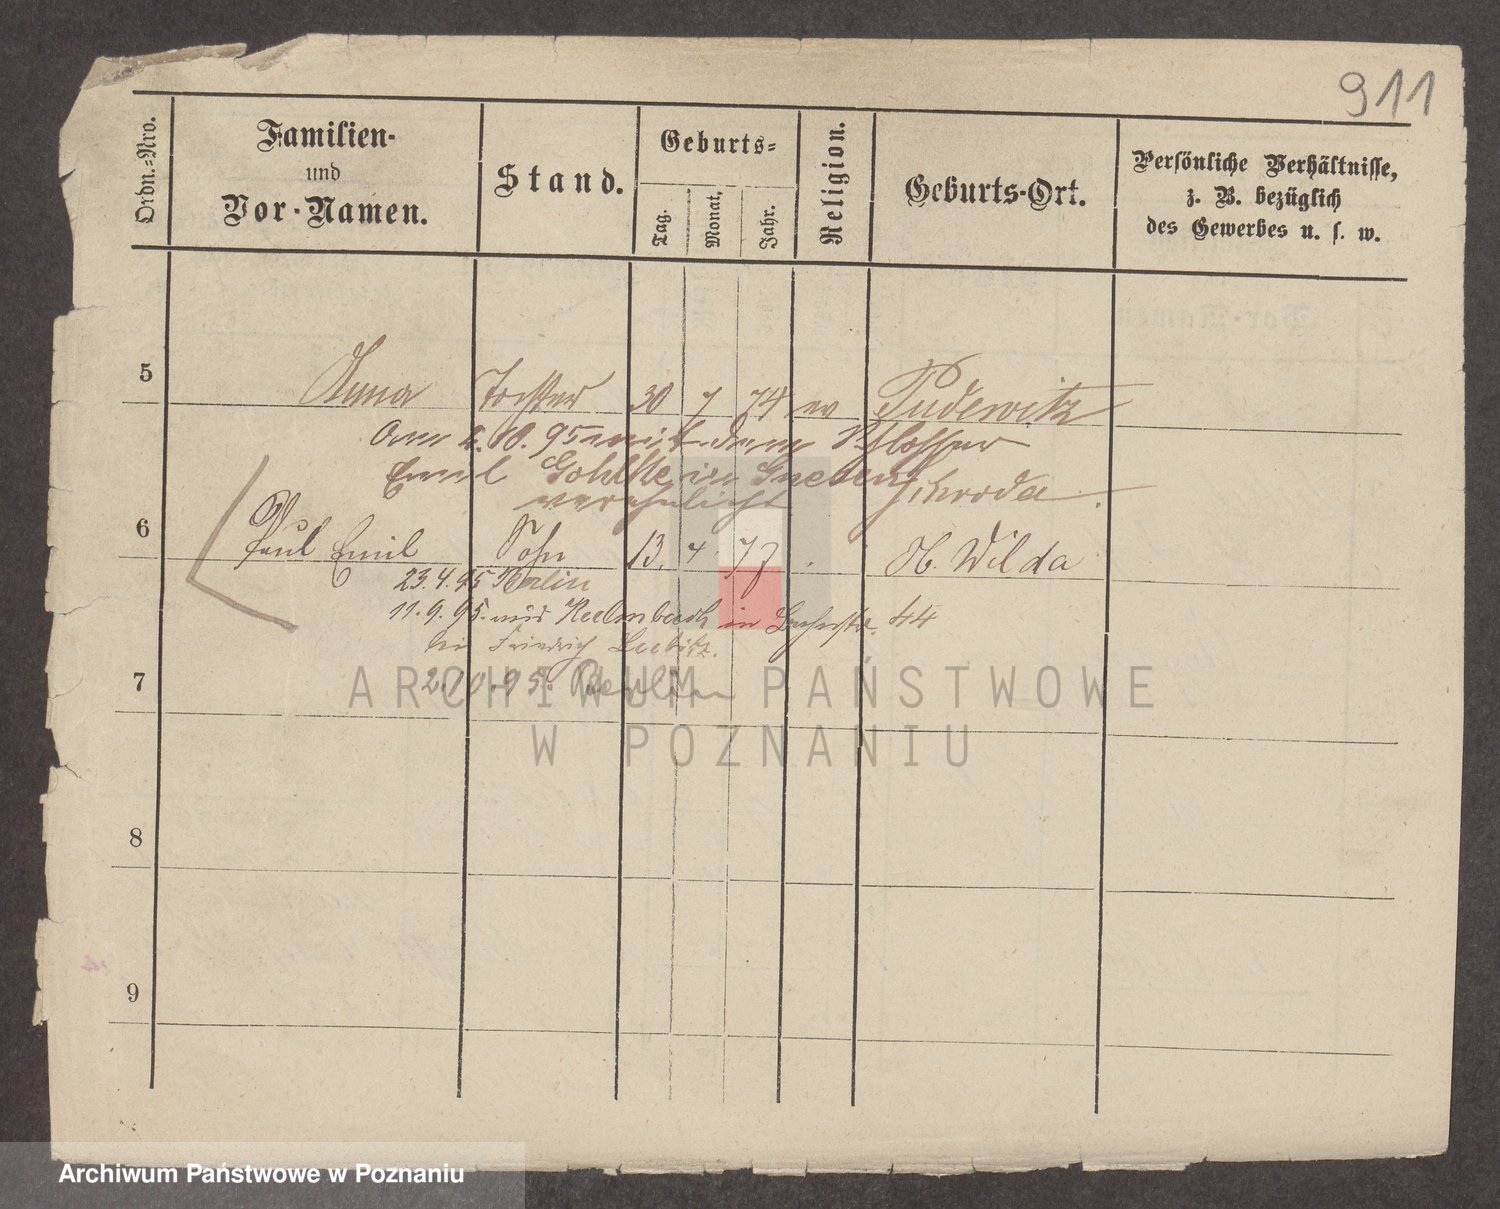 911
Ordn.-Nro.
Familien-
und
Vor-Namen.
Stand.
Geburts-
Tag.
Monat.
Jahr.
Religion.
Geburts-Ort.
Persönliche Verhältnisse,
z. B. bezüglich
des Gewerbes u. s. w.
5 Anna Tochter 30 7 74 ev Pudewitz
Am 2.10.95 mit dem Schlosser
Emil Gohlke in Gnesen
verehelicht Schroda
6 Paul Emil Sohn 13. 4. 77 O. Wilda
23.4.95 Berlin
11.9.95. aus in 44
bei Friedrich
2.10.95. Berlin
7
8
9
ARCHIWUM PAŃSTWOWE
W POZNANIU
Archiwum Państwowe w Poznaniu